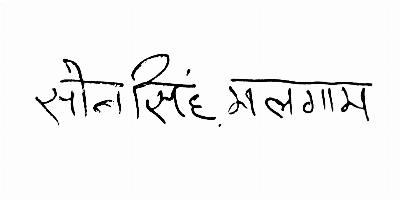 सोन सिंह मलगाम